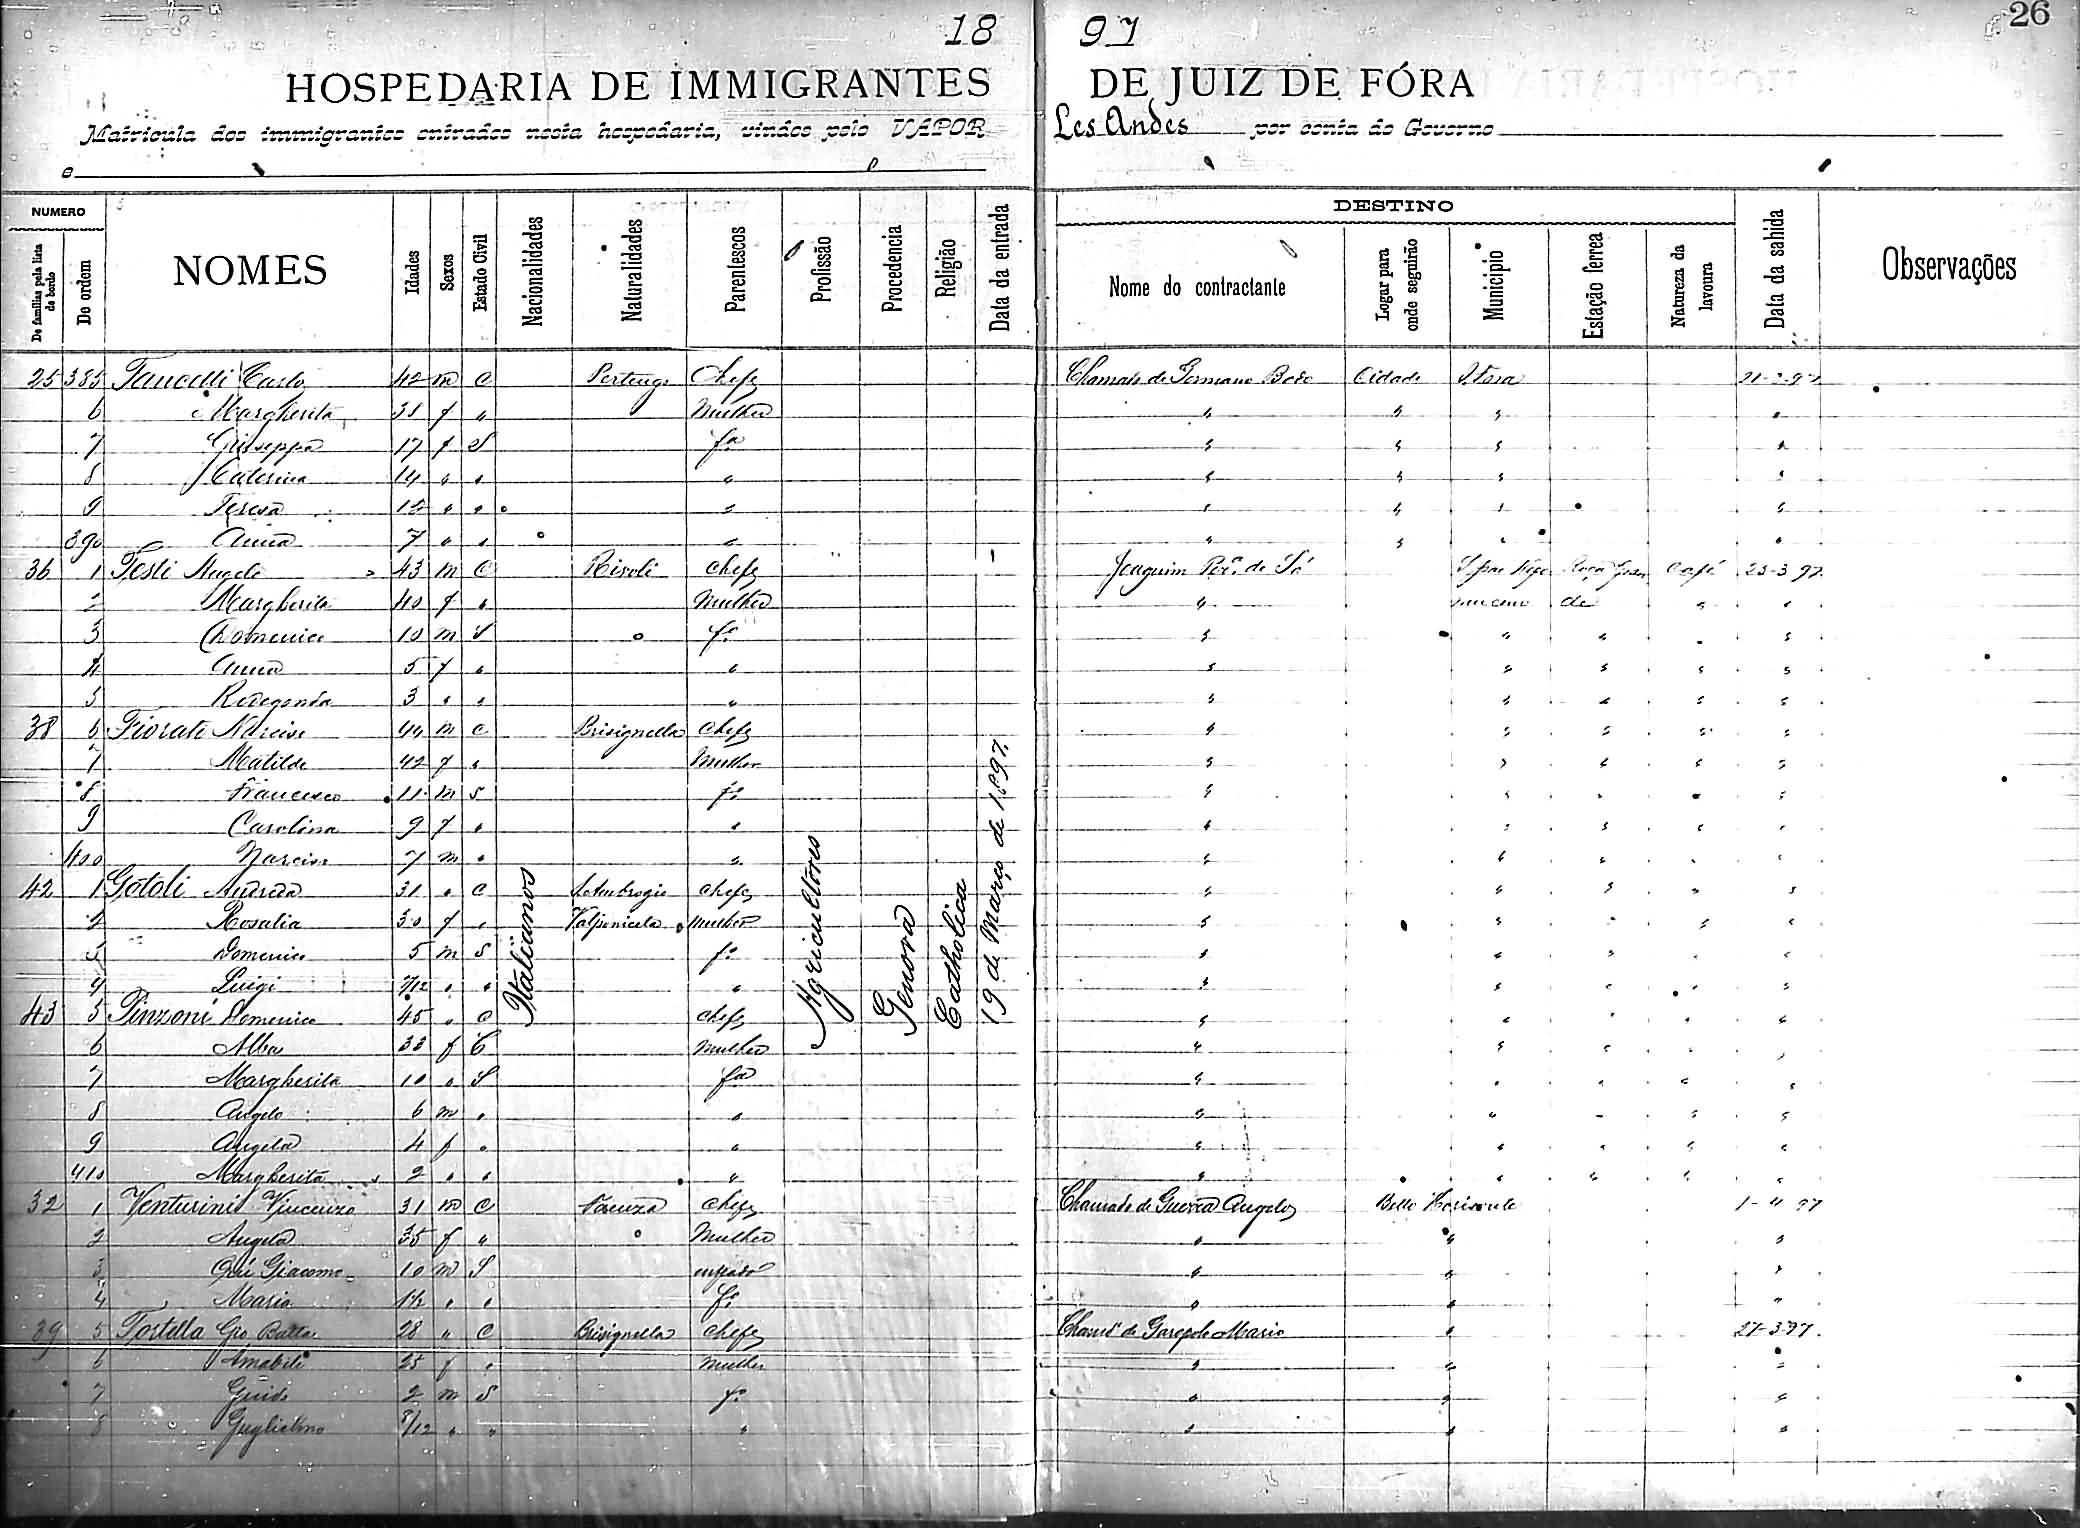 18 97
26
HOSPEDARIA DE IMMIGRANTES DE JUIZ DE FÓRA
Matricula dos immigrantes entrados nesta hospedaria, vindos pelo VAPOR Les Andes por conta do Governo
e
NUMERO
DESTINO
De familias pela lista de bordo De ordem NOMES Idades Sexos Estado Civil Nacionalidades Naturalidades Parentescos Profissão Procedencia Religião Data da entrada Nome do contractante Logar para onde seguirão Municipio Estação ferrea Natureza da lavoura Data da sahida Observações
25 385 Tancelli Carlo 42 m C Chefe Chamado de Germano Cidade J. Fora
6 Margherita f " Mulher " " " "
7 Giuseppa 17 f S fa " " " "
8 Caterina 14 " " " " " " "
9 Teresa 12 " " " " " " "
390 Anna 7 " " " " " " "
36 1 Testi Angelo 43 m C Rivoli Chefe Joaquim de Sá Café 23-3-97
2 Margherita 40 f " Mulher " de " "
3 Domenico 10 m S fo " " " " "
4 Anna 5 f " " " " " " "
5 Redegonda 3 " " " " " " " "
38 6 Fiorati Narciso 44 m C Brisignella Chefe " " " " "
7 Matilde 42 f " Mulher " " " " "
8 Francesco 11 m S fo " " " " "
9 Carolina 9 f " " " " " " "
400 Narciso 7 m " " " " " " "
42 1 Gotoli Andrea 31 " C S. Ambrogio Chefe " " " " "
2 Rosalia 30 f " Valponicela Mulher " " " " "
3 Domenico 5 m S fo " " " " "
4 Luigi 7/12 " " " " " " " "
43 5 Pinzoni Domenico 45 " C Chefe " " " " "
6 Alba 33 f C Mulher " " " " "
7 Margherita 10 " S fa " " " " "
8 Angelo 6 m " " " " " " "
9 Angela 4 f " " " " " " "
410 Margherita 2 " " " " " " " "
Italianos
Agricultores
Genova
Catholica
19 de Março de 1897.
32 1 Venturini Vincenzo 31 m C Faenza Chefe Chamado de Guerra Angelo Bello Horisonte 1-4-97
2 Angela 35 f " " Mulher " " "
3 Giacomo 10 m S enteado " " "
4 Mario " " fo " " "
39 5 Tostella Gio Batta 28 " C Brisignella Chefe Chamdo de Mario " 27-3-97.
6 Amabile 25 f " Mulher " " "
7 Guido 2 m S fo " " "
8 Guglielmo 8/12 " " " " " "